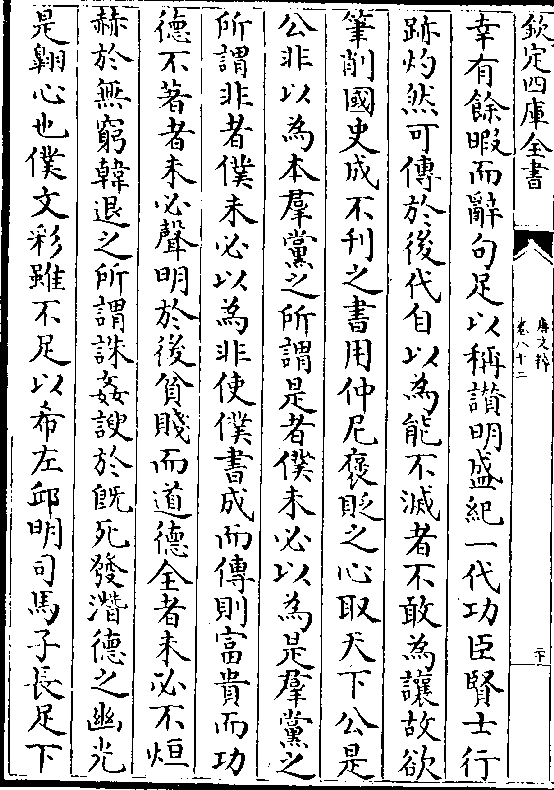 欽定四庫全書
唐文粹
卷八十二
二十
幸有餘暇而辭句足以稱讃明盛紀一代功臣賢士行
跡灼然可傳於後代自以為能不滅者不敢為讓故欲
筆削國史成不刋之書用仲尼褒貶之心取天下公是
公非以為本羣黨之所謂是者僕未必以為是羣黨之
所謂非者僕未必以為非使僕書成而傳則富貴而功
德不著者未必聲明於後貧賤而道德全者未必不烜
赫於無窮韓退之所謂誅姦諛於旣死發潛德之幽光
是翺心也僕文彩雖不足以希左邱明司馬子長足下